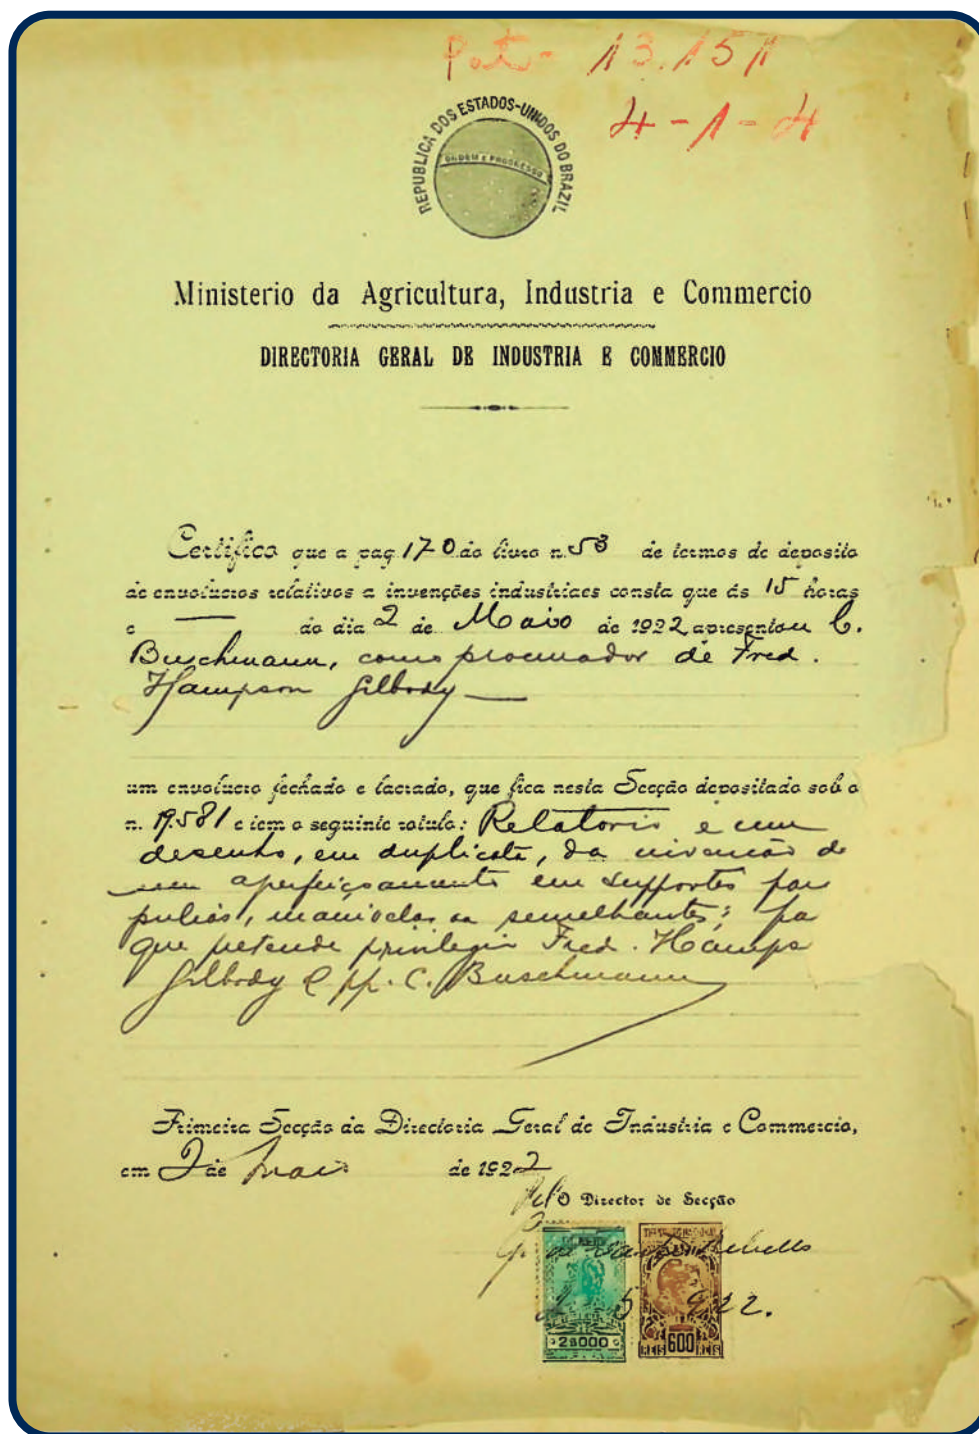 Pat- 13.151
4-1-4
REPUBLICA DOS ESTADOS-UNIDOS DO BRAZIL
ORDEM E PROGRESSO
Ministerio da Agricultura, Industria e Commercio
DIRECTORIA GERAL DE INDUSTRIA E COMMERCIO
Certifico que a pag. 170 do livro n. 53 de termos de deposito
de envolucros relativos a invenções industriaes consta que ás 15 horas
e — do dia 2 de Maio de 1922 apresentou C.
Buschmann, como procurador de Fred.
Hampson Gilbody —
um envolucro fechado e lacrado, que fica nesta Secção depositado sob o
n. 19.581 e tem o seguinte rotulo: Relatorio e um
desenho, em duplicata, da invenção de
um aperfeiçoamento em supportes par
manivelas ou semelhantes; pa
que pretende privilegio Fred. Hamps
Gilbody pp. C. Buschmann
Primeira Secção da Directoria Geral de Industria e Commercio,
em 2 de Maio de 1922
Pelo O Director de Secção
2 5 922.
2$000
REIS 600 REIS